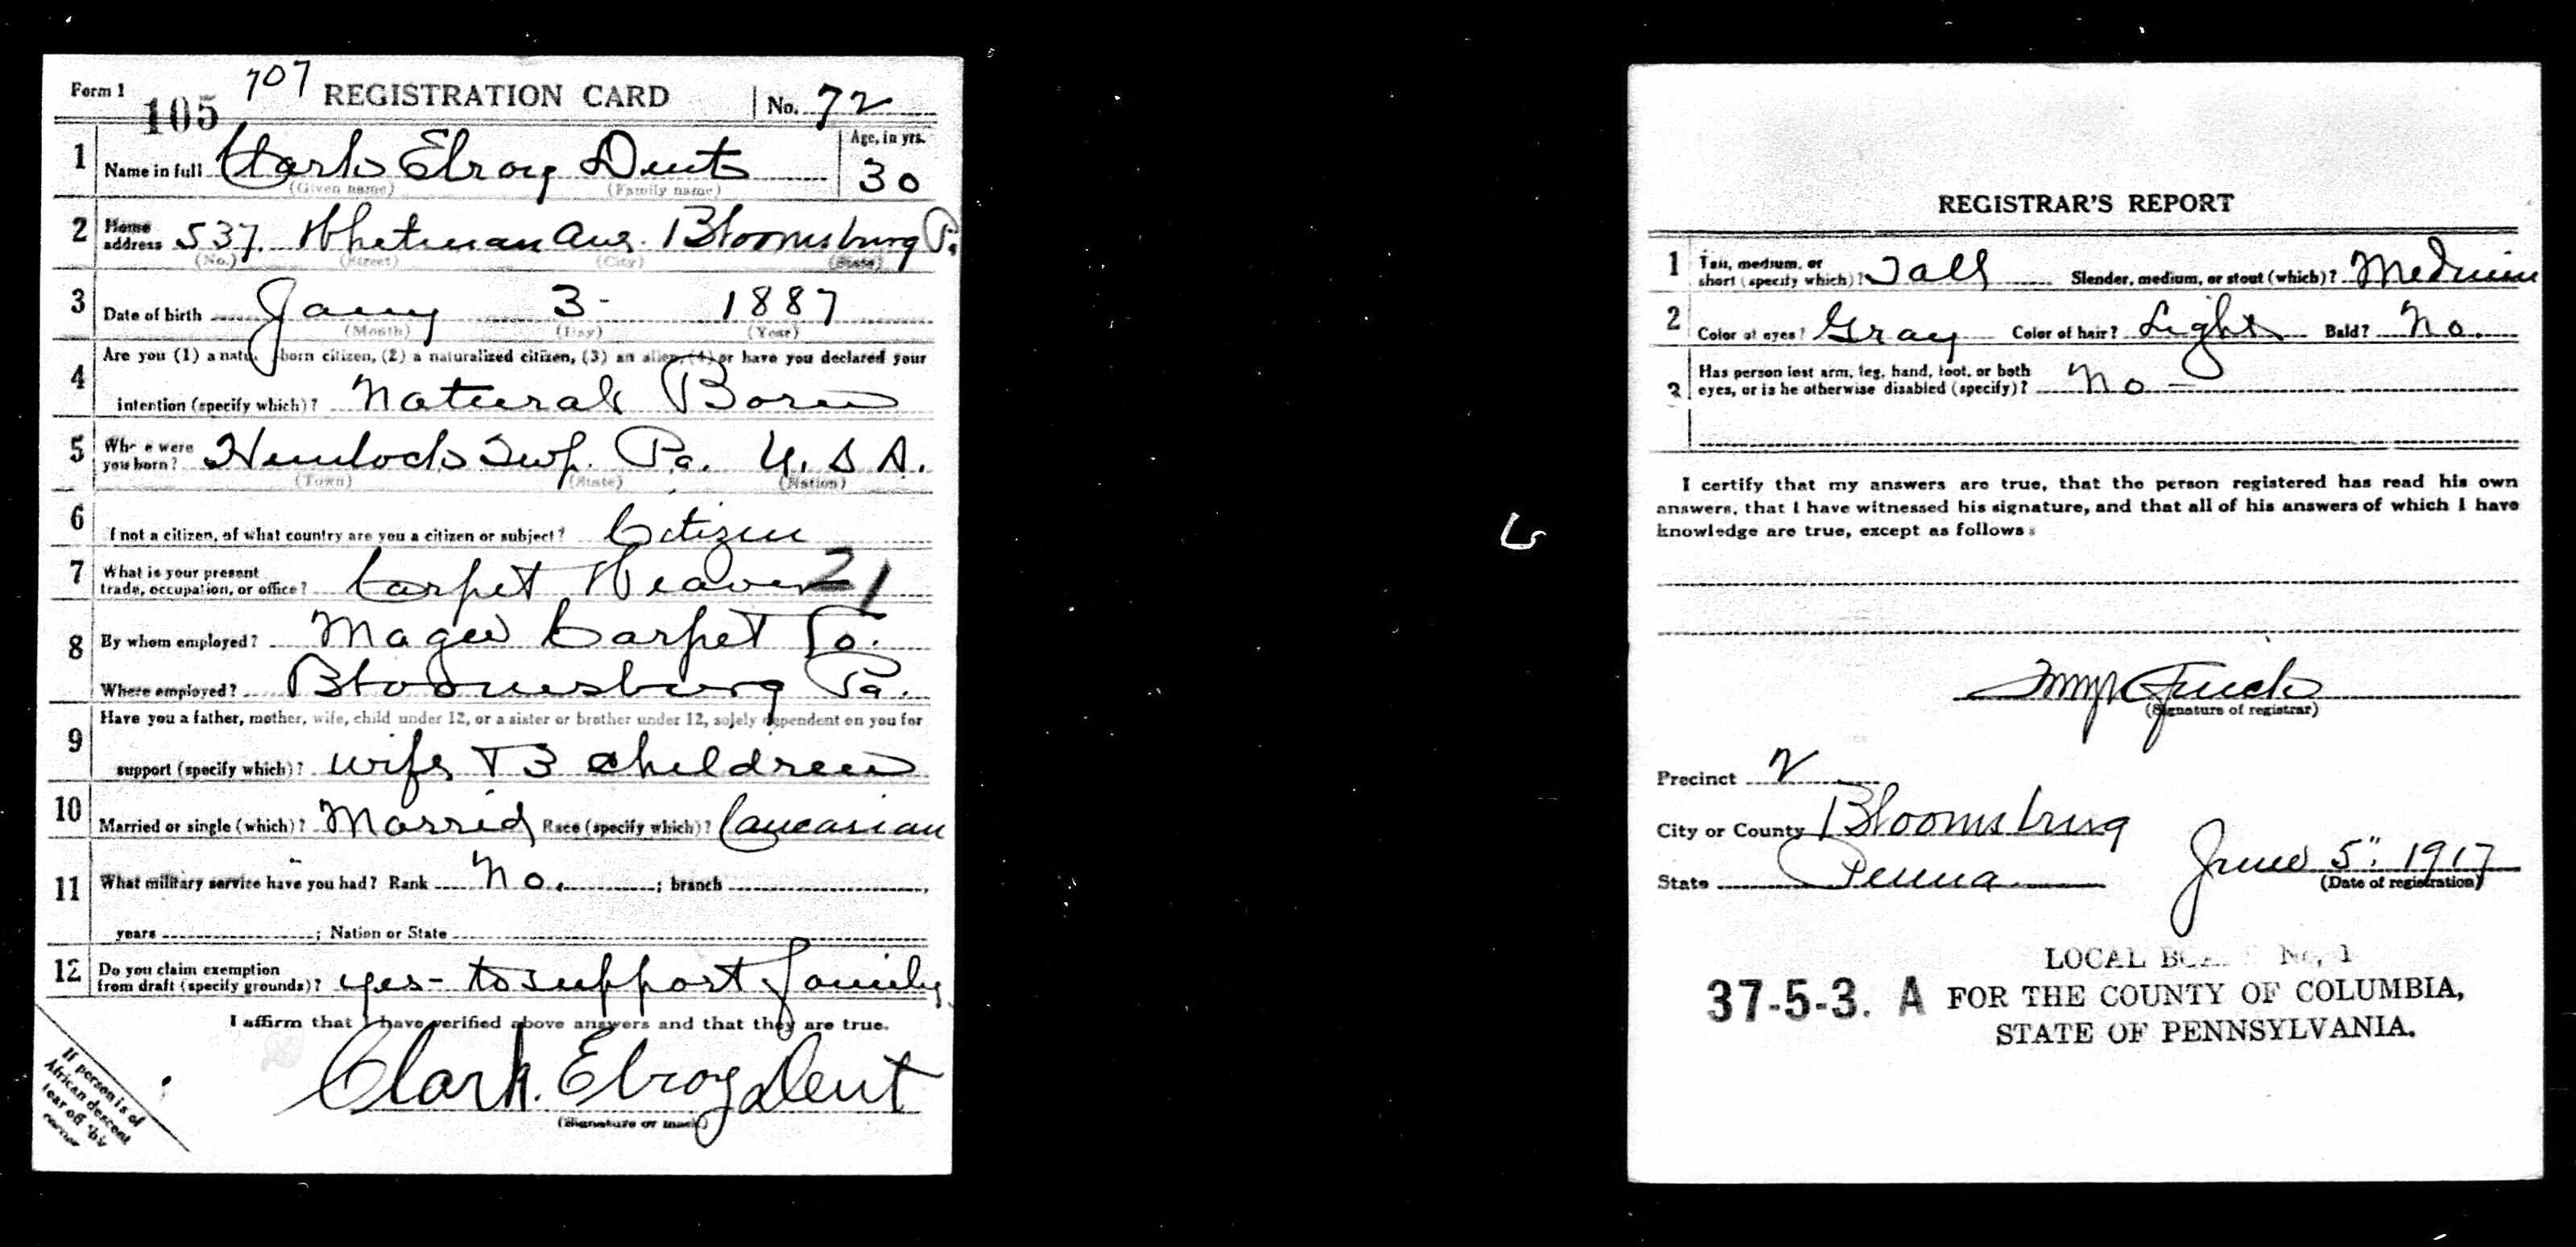 Form 1
105
707
REGISTRATION CARD
No. 72
1 Name in full Clark Elroy Dent
(Given name) (Family name)
Age, in yrs. 30
2 Home address 537. Whetman Ave. Bloomsburg Pa
(No.) (Street) (City) (State)
3 Date of birth Jany 3- 1887
(Month) (Day) (Year)
4 Are you (1) a natu born citizen, (2) a naturalized citizen, (3) an alien, (4) or have you declared your
intention (specify which)? Natural Born
5 Whe e were you born? Hemlock Twp. Pa. U. S A.
(Town) (State) (Nation)
6 I not a citizen, of what country are you a citizen or subject? Citizen
7 What is your present trade, occupation, or office? Carpet Weaver 21
8 By whom employed? Magee Carpet Co.
Where employed? Bloomsburg Pa.
9 Have you a father, mother, wife, child under 12, or a sister or brother under 12, solely dependent on you for
support (specify which)? wife + 3 children
10 Married or single (which)? Married Race (specify which)? Caucasian
11 What military service have you had? Rank No. ; branch
years ; Nation or State
12 Do you claim exemption from draft (specify grounds)? yes- to support family
I affirm that I have verified above answers and that they are true.
Clark. Elroy Dent
(Signature or mark)
If person is of
African descent
tear off this
corner
REGISTRAR'S REPORT
1 Tall, medium, or short (specify which)? Tall Slender, medium, or stout (which)? Medium
2 Color of eyes? Gray Color of hair? Light Bald? No.
3 Has person lost arm, leg, hand, foot, or both eyes, or is he otherwise disabled (specify)? No -
I certify that my answers are true, that the person registered has read his own
answers, that I have witnessed his signature, and that all of his answers of which I have
knowledge are true, except as follows:
(Signature of registrar)
Precinct 2
City or County Bloomsburg
State Penna
June 5". 1917
(Date of registration)
LOCAL No. 1
37-5-3. A FOR THE COUNTY OF COLUMBIA,
STATE OF PENNSYLVANIA.